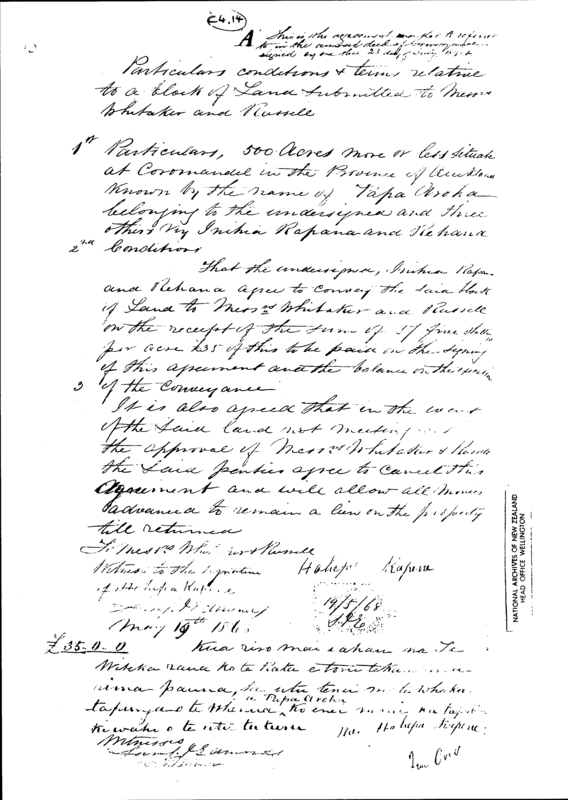 C4.14
A This is the agreement marked A referred
to in the annexed deed of
signed by me this 23 day of
Particulars conditions & terms relative
to a block of Land submitted to Messrs
Whitaker and Russell
1st Particulars, 500 Acres more or less situate
at Coromandel in the Province of Auckland
Known by the name of Tapa Aroha
belonging to the undersigned and three
others viz Inihia Rapana and Rehana
2nd Conditions
That the undersigned, Inihia Rapa-
and Rehana agree to convey the said block
of Land to Messrs Whitaker and Russell
on the receipt of the sum of 5/ five shillings
per acre £35 of this to be paid on the signing
of this agreement and the balance on the execution
3 of the Conveyance
It is also agreed that in the event
of the said land not meeting
the approval of Messrs Whitaker & Russell
the said parties agree to cancel this
Agreement and will allow all monies
advanced to remain a lien on the property
till returned
To Messrs Whi and Russell
Witness to the signature
of Hahipa Kapene
Hahipa Kapene
19/5/68
May 19th 186
£35.0.0 Kua riro mai i ahau na Te
Witika raua ko te
rima pauna,
tapunga o te Whenua, Tapa Aroha
ki te utu tuturu
Na Hahipa Kapene
Witnesses
J Edmonds
NATIONAL ARCHIVES OF NEW ZEALAND
HEAD OFFICE WELLINGTON